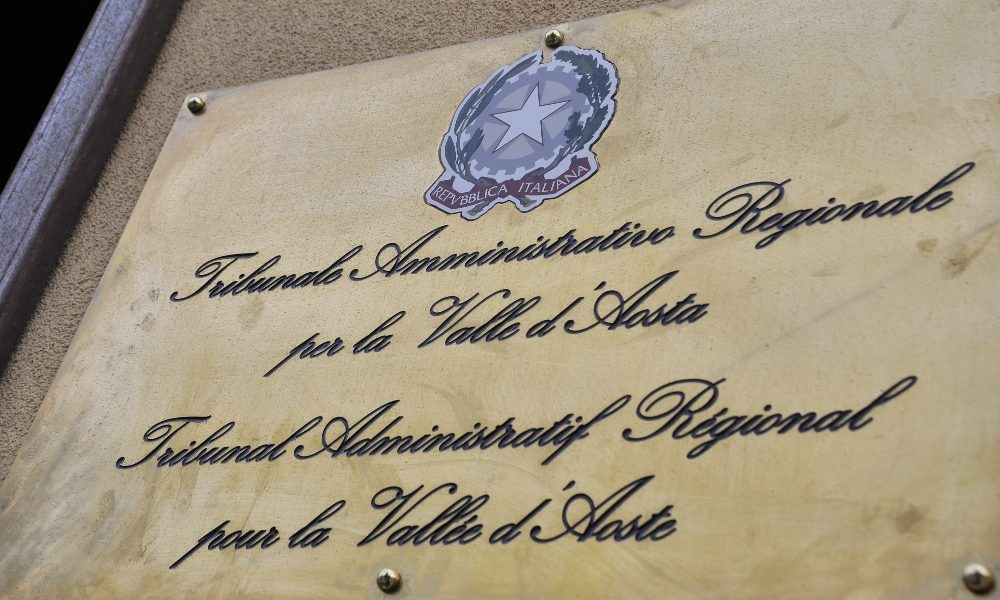 REPVBBLICA ITALIANA
Tribunale Amministrativo Regionale
per la Valle d'Aosta
Tribunal Administratif Régional
pour la Vallée d'Aoste